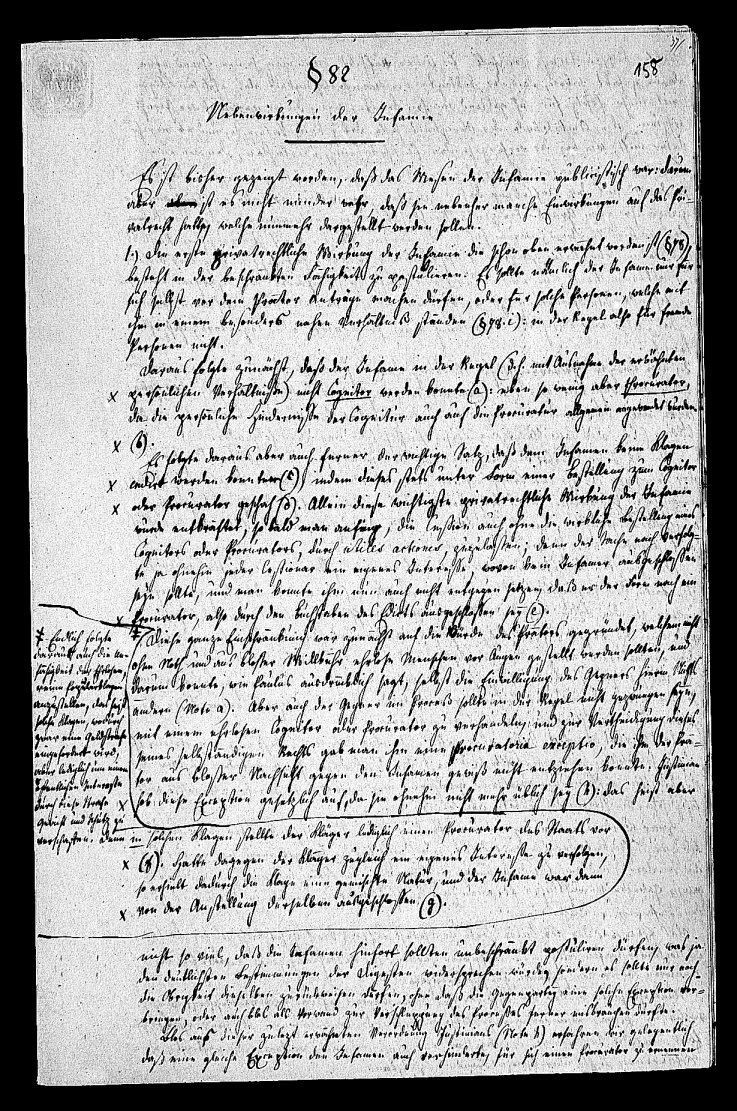 158
§ 82
Nebenwirkungen der Infamie
Es ist bisher gezeigt worden, daß das Wesen der Infamie publicistisch war: darum
aber ist es nicht minder wahr, daß sie nebenher manche Einwirkungen auf das Pri-
vatrecht hatte, welche nunmehr dargestellt werden sollen.
1.) Die erste privatrechtliche Wirkung der Infamie die schon oben erwähnt worden ist (§ 78),
besteht in der beschränkten Fähigkeit zu postuliren. Es sollte nämlich der Infame nur für
sich selbst vor dem Prätor Anträge machen dürfen, oder für solche Personen, welche mit
ihm in einem besonders nahen Verhältniß ständen (§ 78. i): in der Regel also für fremde
Personen nicht.
Daraus folgte zunächst, daß der Infame in der Regel (d. h. mit Ausnahme der erwähnten
× persönlichen Verhältnisse) nicht Cognitor werden konnte (a): eben so wenig aber Procurator,
da die persönlichen Hindernisse der Cognitur auch auf die Procuratur allgemein angewendet wurden
× (b).
Es folgte daraus aber auch ferner der wichtige Satz, daß dem Infamen keine Klagen
× cedirt werden konnten (c), indem dieses stets unter Form einer Bestellung zum Cognitor
× oder Procurator geschah (d). Allein diese wichtigste privatrechtliche Wirkung der Infamie
wurde entkräftet, so bald man anfing, die Cession auch ohne die wirkliche Bestellung eines
Cognitors oder Procurators, durch utiles actiones, zuzulassen; denn der Sache nach verfolg-
te ja ohnehin jeder Cessionar ein eigenes Interesse wovon kein Infamer ausgeschlossen
seyn sollte, und man konnte ihm nun auch nicht entgegen setzen, daß er der Form nach ein
× Procurator, also durch den Buchstaben des Edicts ausgeschlossen sey (e).
Diese ganze Einschränkung war zunächst auf die Würde des Prätors gegründet, welchem nicht
ohne Noth und aus bloßer Willkühr ehrlose Menschen vor Augen gestellt werden sollten, und
darum konnte, wie Paulus ausdrücklich sagt, selbst die Einwilligung des Gegners hierin Nichts
ändern (Note a). Aber auch der Gegner im Proceß sollte in der Regel nicht gezwungen seyn,
mit einem ehrlosen Cognitor oder Procurator zu verhandeln, und zur Vertheidigung dieses
seines selbständigen Rechts gab man ihm eine procuratoria exceptio, die ihm der Prä-
tor aus bloßer Nachsicht gegen den Infamen gewiß nicht entziehen konnte. Justinian
× hob diese Exception gesetzlich auf, da sie ohnehin nicht mehr üblich sey (h): das heißt aber
# Endlich folgte
daraus auch die Un-
fähigkeit der Ehrlosen,
reine Popularklagen
anzustellen, das heißt
solche Klagen, wodurch
zwar eine Geldstrafe
eingefordert wird,
aber lediglich um einem
öffentlichen Interesse
durch diese Strafe
Gewicht und Schutz zu
verschaffen. Denn in solchen Klagen stellte der Kläger lediglich einen Procurator des Staats vor
× (f). Hatte dagegen der Kläger zugleich ein eigenes Interesse zu verfolgen,
so erhielt dadurch die Klage eine gemischte Natur, und der Infame war dann
× von der Anstellung derselben nicht ausgeschlossen (g).
nicht so viel, daß die Infamen hinfort sollten unbeschränkt postuliren dürfen, was ja
den deutlichsten Bestimmungen der Digesten widersprechen würde, sondern es sollte nur noch
die Obrigkeit dieselben zurückweisen dürfen, ohne daß die Gegenpartey eine solche Exception vor-
bringen, oder auch blos als Vorwand zur Verschleppung des Processes ferner misbrauchen dürfte.
Blos aus dieser zuletzt erwähnten Verordnung Justinians (Note h) erfahren wir gelegentlich
daß eine gleiche Exception den Infamen auch verhinderte, für sich einen Procurator zu ernennen